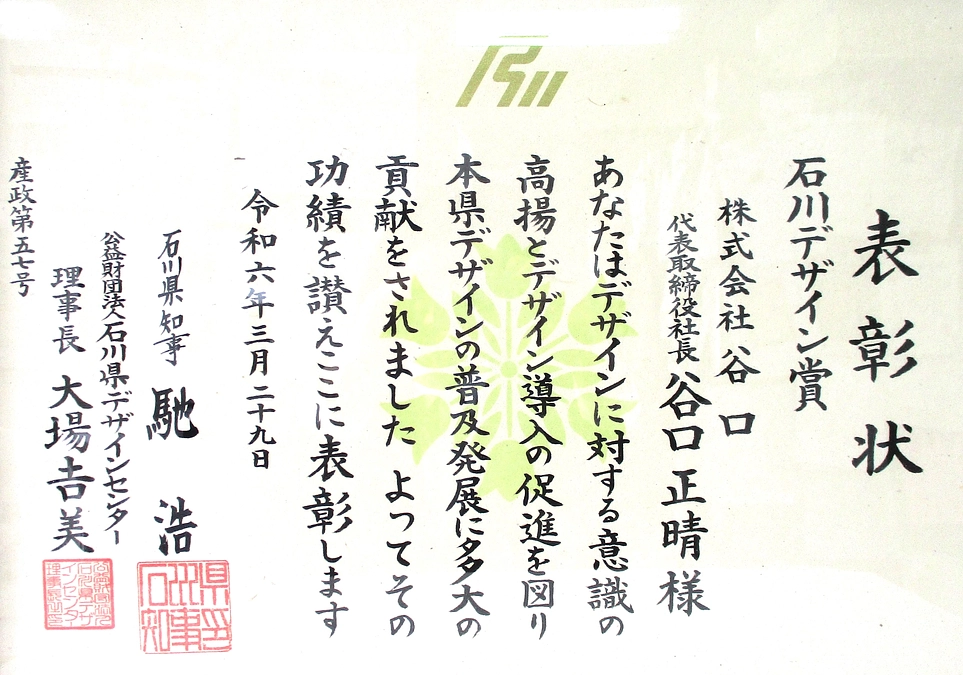 表彰状
石川デザイン賞
株式会社 谷口
代表取締役社長 谷口 正晴 様
あなたはデザインに対する意識の
高揚とデザイン導入の促進を図り
本県デザインの普及発展に多大の
貢献をされました よつてその
功績を讃えここに表彰します
令和六年三月二十九日
石川県知事 馳 浩
公益財団法人石川県デザインセンター
理事長 大場吉美
産政第五七号